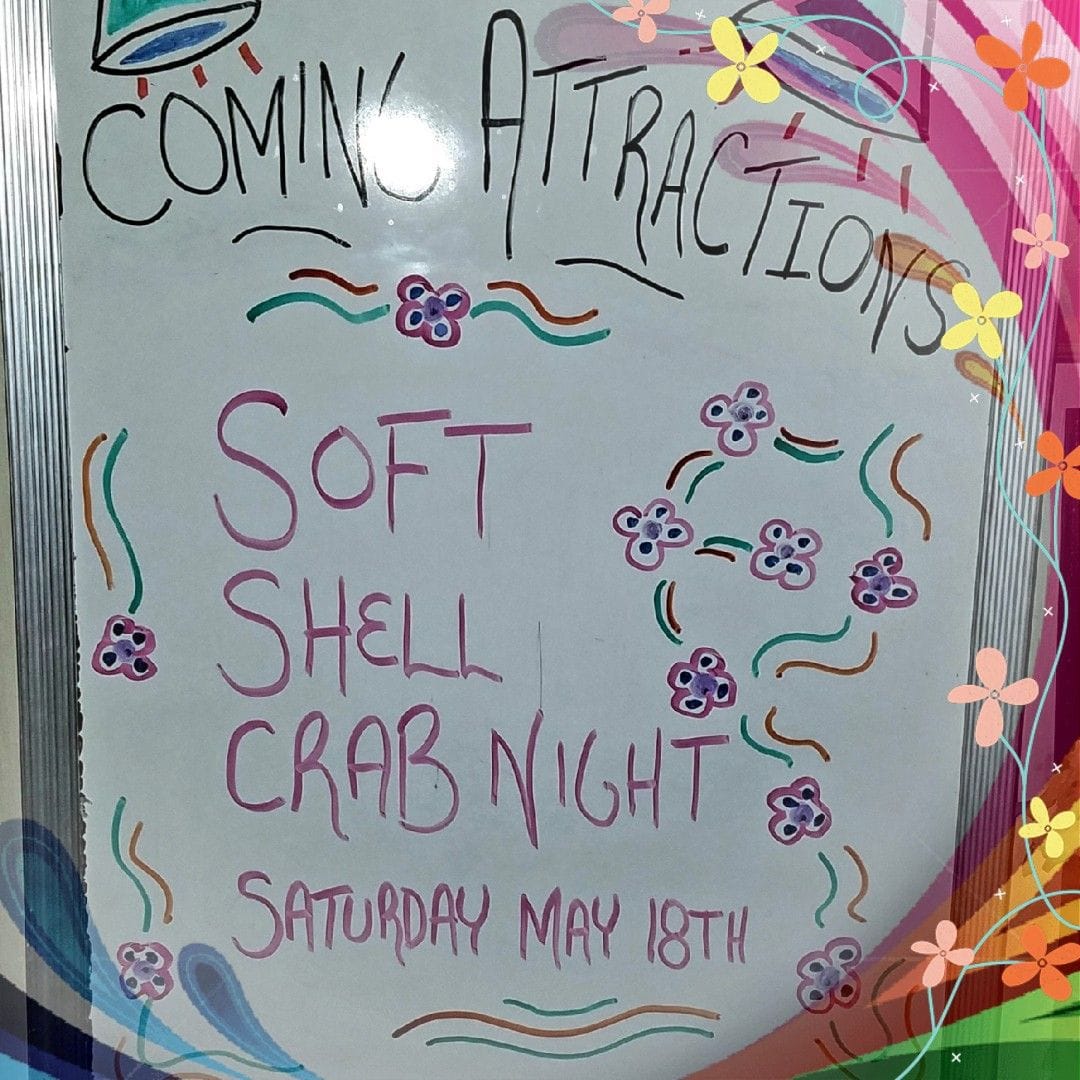 COMING ATTRACTIONS
SOFT
SHELL
CRAB NIGHT
SATURDAY MAY 18TH